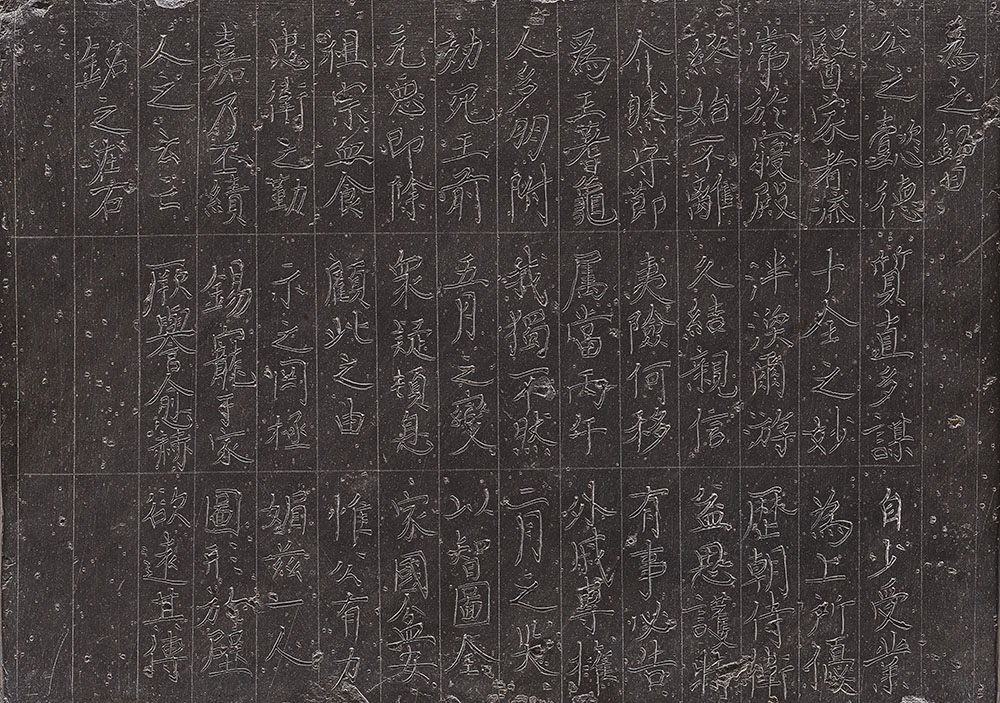 為之銘曰
公之懿德 質直多謀 自少受業
醫家者流 十全之妙 為上所優
常於寢殿 泮渙爾游 歷朝侍衛
終始不離 久結親信 益思護持
介然守節 夷險何移 有事必告
為王蓍龜 属當丙午 外戚專權
人多朋附 我獨不然 二月之災
効死王前 五月之變 以智圖全
元惡即除 衆疑頓息 家國益安
祖宗血食 顧此之由 惟公有力
忠衛之勤 示之罔極 媚兹一人
嘉乃丕績 錫寵于家 圖形於壁
人之云亡 厥譽愈 欲遠其傳
銘之窆石